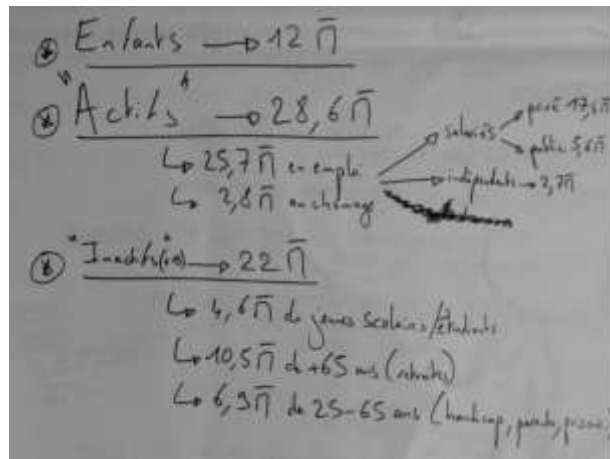 * Enfants → 12 M̄
* "Actifs" → 28,6 M̄
↳ 25,7 M̄ en emploi
↳ 2,8 M̄ au chômage
salariés
privé 17,6 M̄
public 5,6 M̄
indépendants → 2,7 M̄
* "Inactifs" → 22 M̄
↳ 4,6 M̄ de jeunes scolaires/étudiants
↳ 10,5 M̄ de +65 ans (retraités)
↳ 6,9 M̄ de 25-65 ans (handicap,